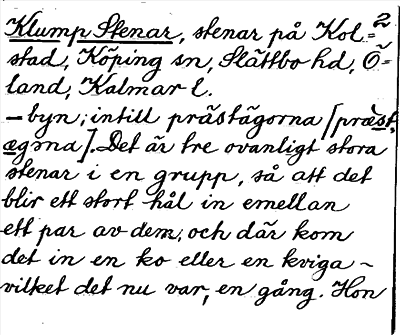 2
Klump Stenar, stenar på Kol=
stad, Köping sn, Slättbo hd, Ö=
land, Kalmar l.
– byn; intill prästägorna [præst,
ægɔna]. Det är tre ovanligt stora
stenar i en grupp, så att det
blir ett stort hål in emellan
ett par av dem, och där kom
det in en ko eller en kviga ~
vilket det nu var, en gång. Hon